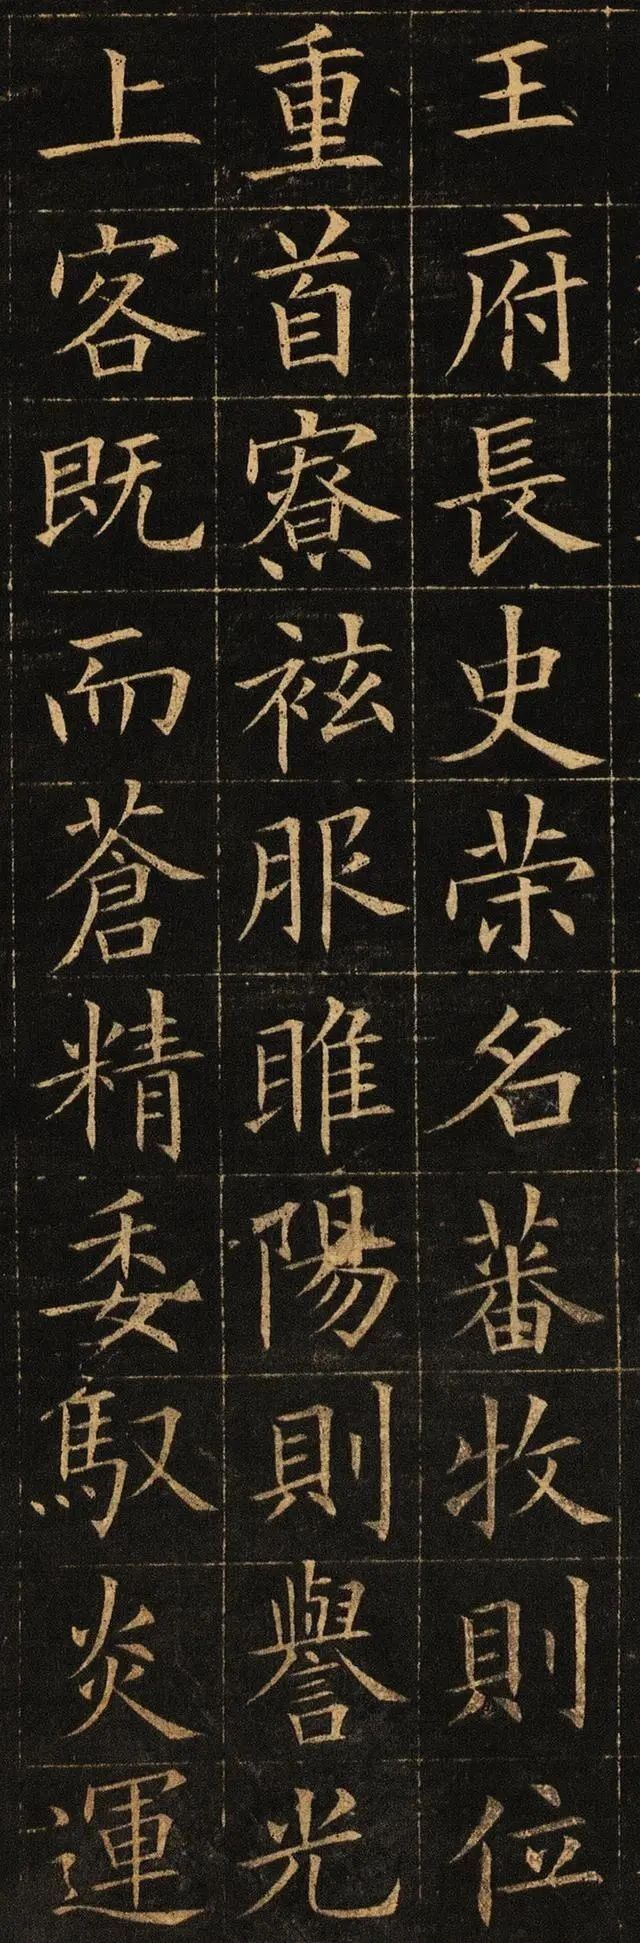 王府長史荣名蕃牧則位
重首寮袨服睢陽則譽光
上客既而蒼精委馭炎運